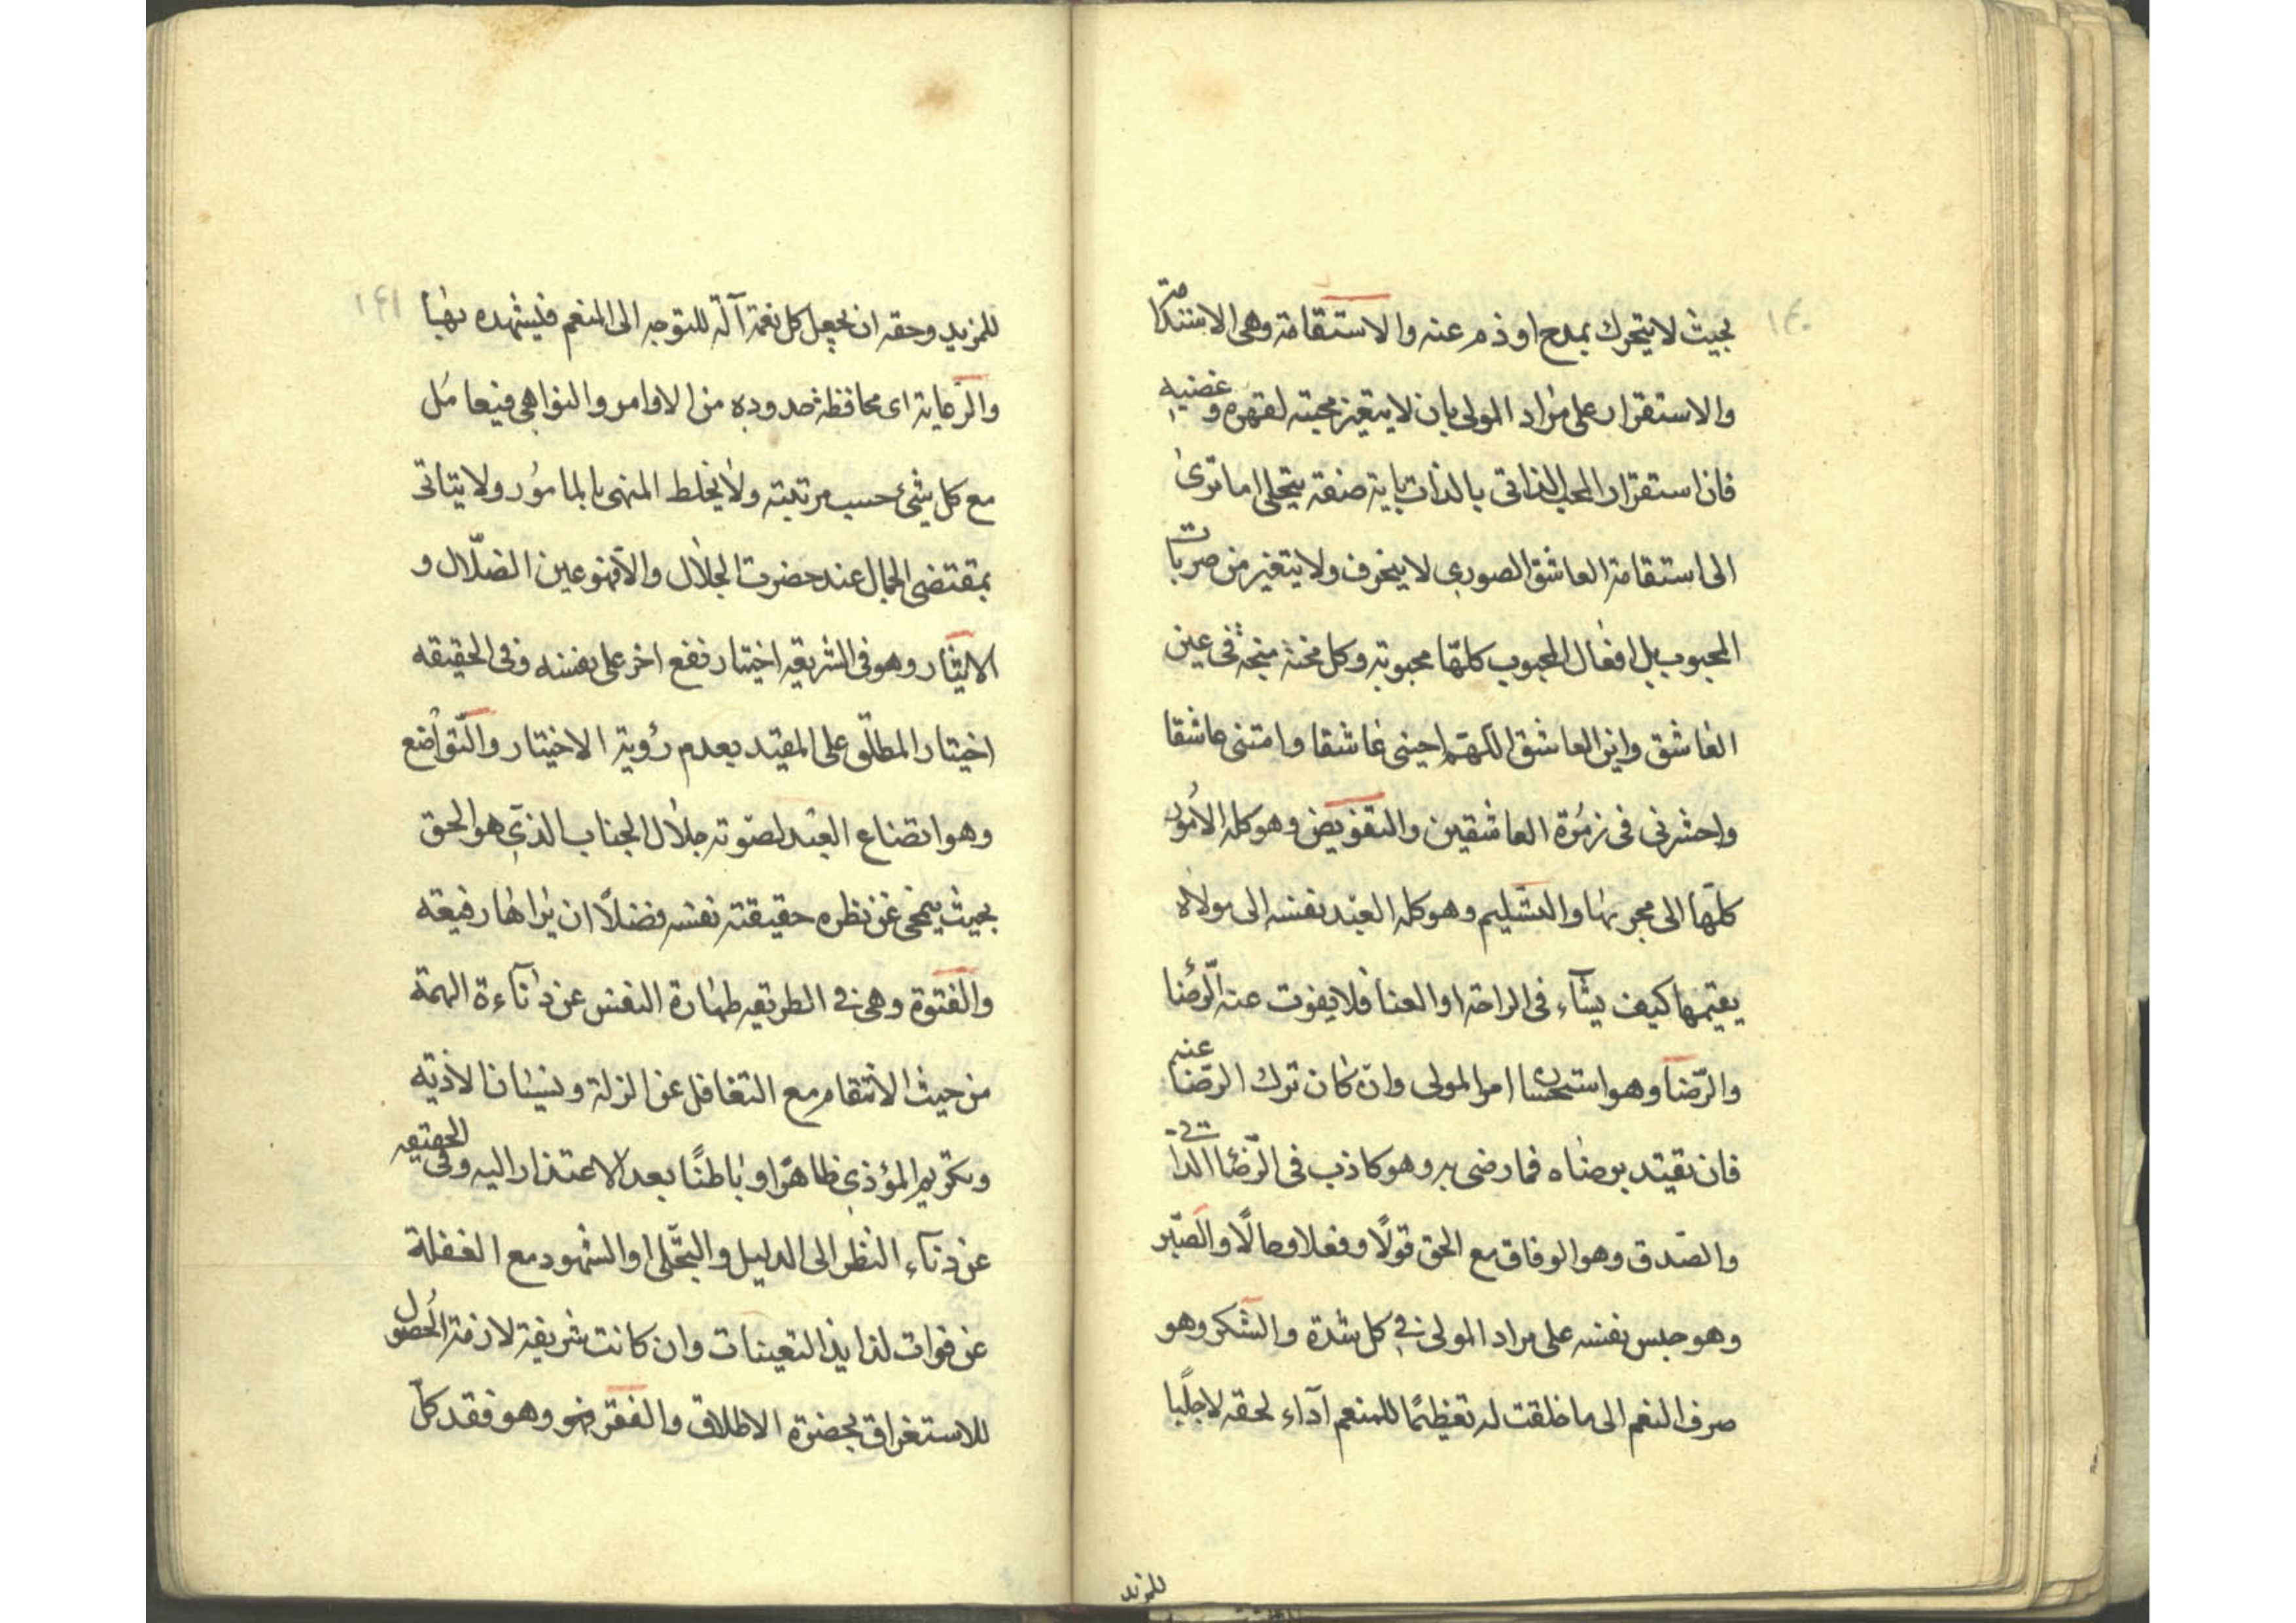 ١٤٠
بحيث لا يتحرك بمدح او ذم عنه والاستقامة وهى الاستدامة
والاستقرار على مراد المولى بان لا يتغير محبته لقهره وغضبه
فان استقرار المحب الذاتى بالذات باية صفة يتجلى اما ترى
الى استقامة العاشق الصورى لا ينحرف ولا يتغير من ضربات
المحبوب بل افعال المحبوب كلها محبوبة وكل محنة منحة فى عين
العاشق واين العاشق اللهم احينى عاشقا وامتنى عاشقا
واحشرنى فى زمرة العاشقين والتفويض وهو كله الامور
كلها الى مجريها والتسليم وهو كله العبد نفسه الى مولاه
يقيمها كيف يشآء فى الراحة او العنا فلا يفوت عنه الرضا
والرضا وهو استحسان امر المولى وان كان ترك الرضا عنه
فان تقيد برضاه فما رضى به وهو كاذب فى الرضا الذاتى
والصدق وهو الوفاق مع الحق قولًا وفعلا وحالًا والصبر
وهو حبس نفسه على مراد المولى فى كل شدة والشكر وهو
صرف النعم الى ما خلقت له تعظيمًا للمنعم آداء لحقه لا جلبًا
للمزيد
١٤١
للمزيد وحقه ان يجعل كل نعمة آلة للتوجه الى المنعم فليشهده بها
والرعاية اى محافظة حدوده من الاوامر والنواهى فيعامل
مع كل شئ حسب مرتبته ولا يخلط المنهى بالمامور ولا يتاتى
بمقتضى الجمال عند حضرت الجلال والا فهو عين الضلال و
الايثار وهو فى الشريعه اختيار نفع اخر على نفسه وفى الحقيقه
اختيار المطلق على المقيد بعدم رؤية الاختيار والتواضع
وهو اتضاع العبد لصوته جلال الجناب الذى هو الحق
بحيث يمحى عن نظره حقيقته نفسه فضلًا ان يراها رفيعه
والفتوة وهى فى الطريقه طهارة النفس عن دنآءة الهمة
من حيث الانتقام مع التغافل عن الزلة ونسيان الاذيه
وتكريم المؤذى ظاهرًا وباطنًا بعد الاعتذار اليه وفى الحقيقه
عن دنآء النظر الى الدليل والتجلى او الشهود مع الغفلة
عن فوات لذايذ التعينات وان كانت شريفة لازمة الحصول
للاستغراق بحضرة الاطلاق والفقر وهو فقد كل